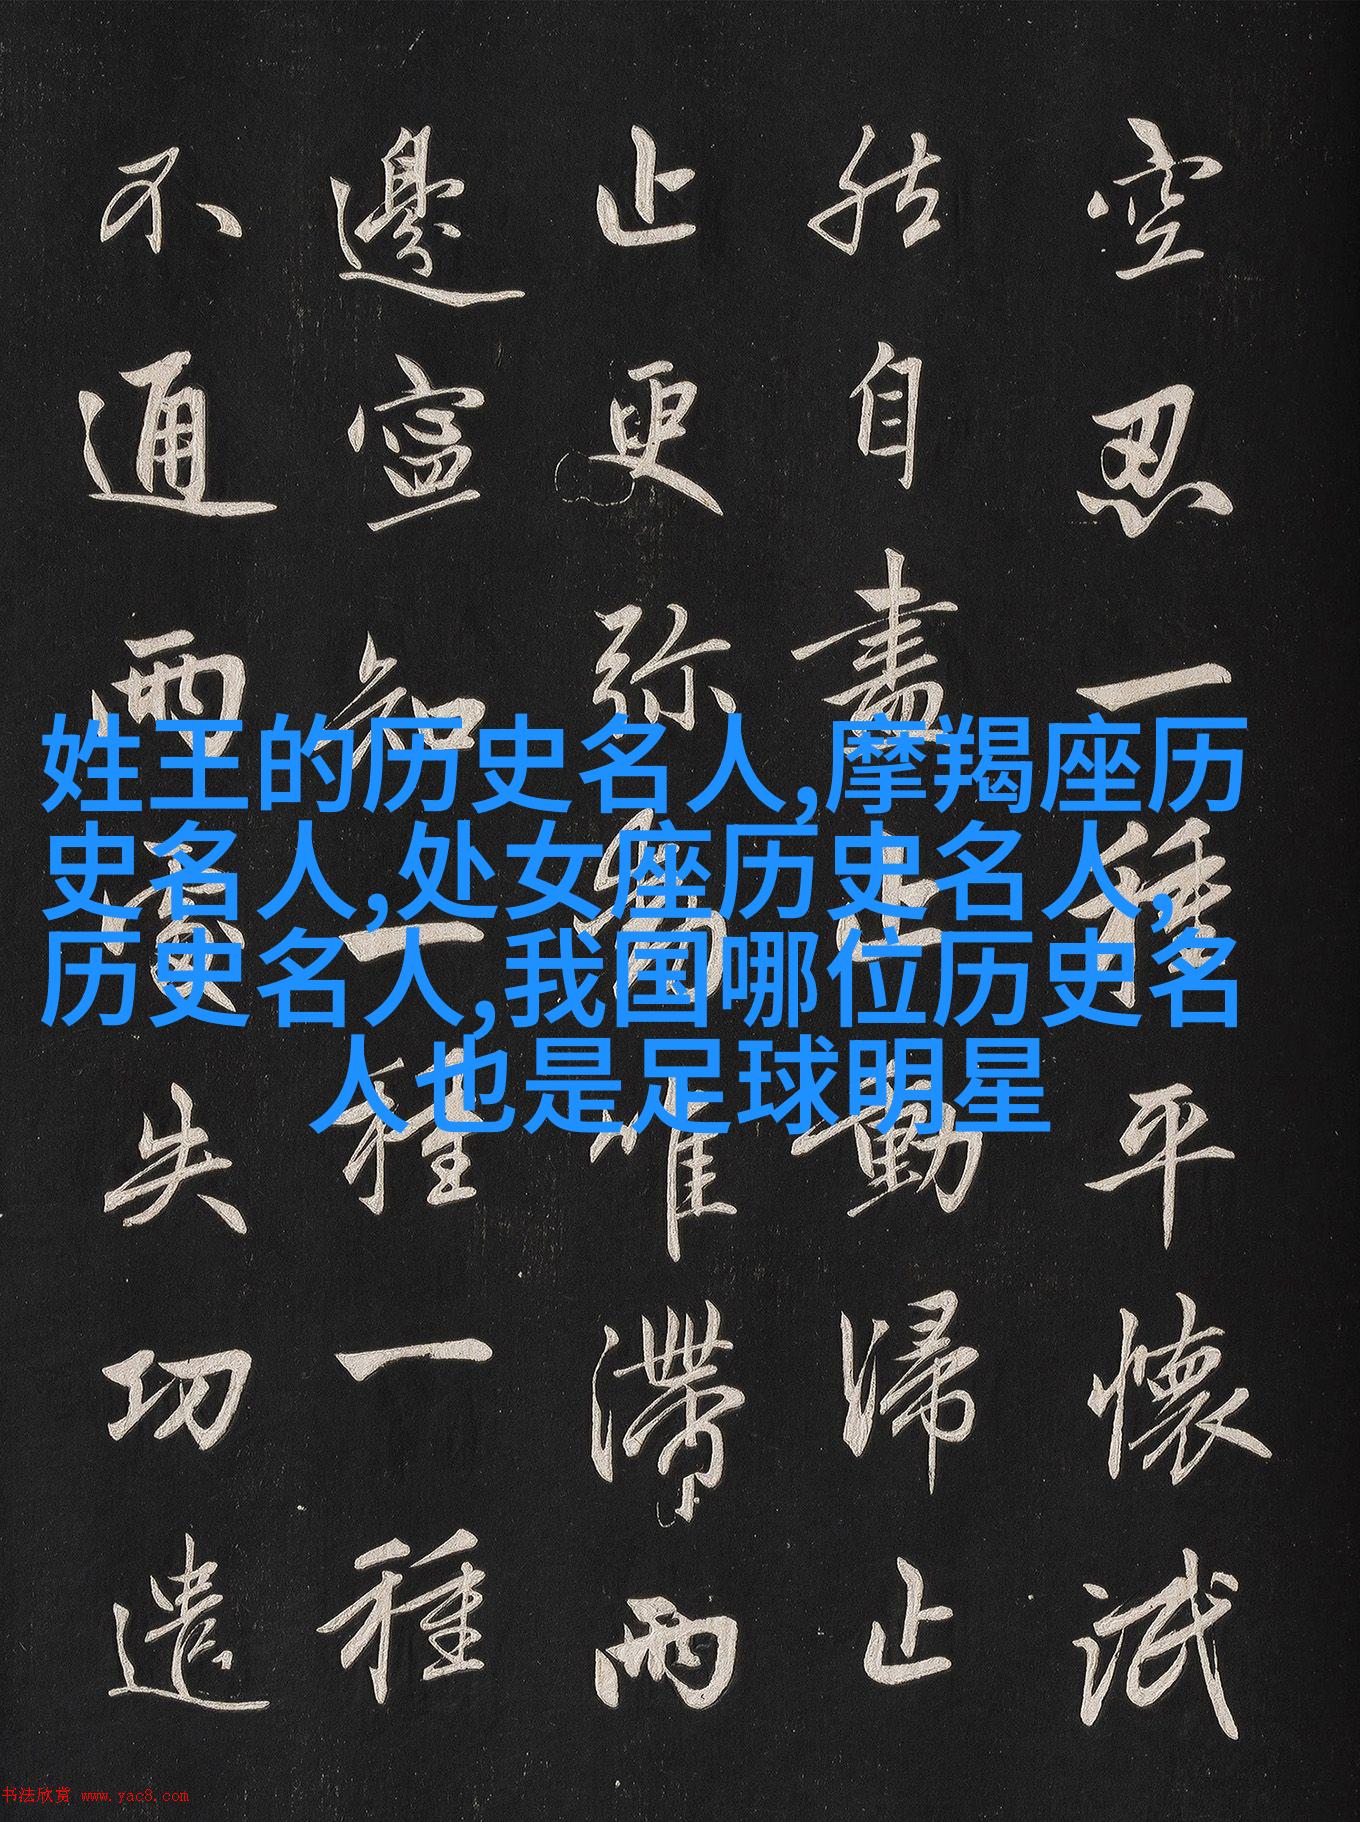 空忍一種平懷泯
然自盡止動歸止
止更弥動唯滯兩
邊寧知一種一種
不通兩處失功遣
姓王的历史名人,摩羯座历
史名人,处女座历史名人,
历史名人,我国哪位历史名
人也是足球明星
书法欣赏 www.yac8.com